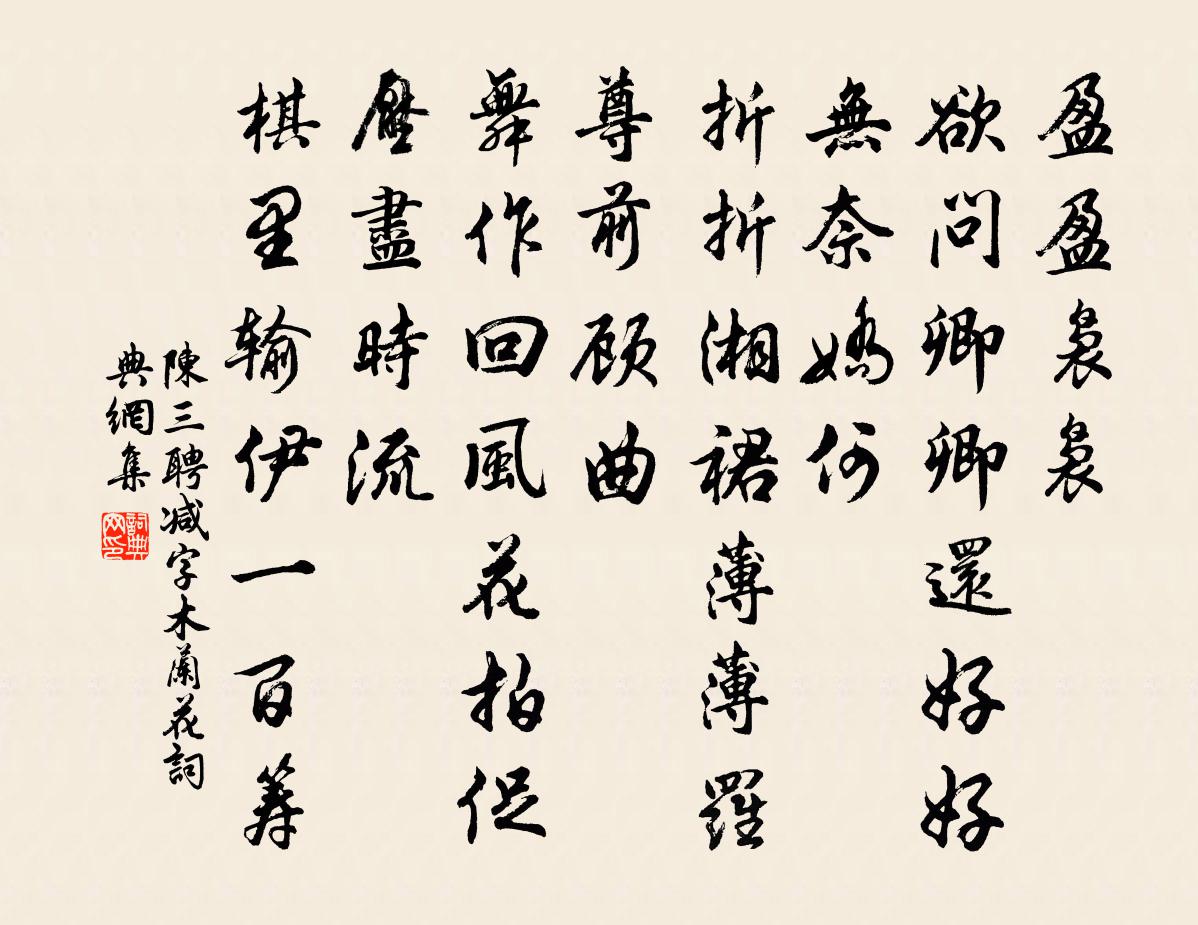 盈盈裊裊
欲問卿卿還好好
無奈嬌何
折折湘裙薄薄羅
尊前顾曲
舞作回風花拍促
壓盡時流
棋里输伊一百筹
陳三聘减字木蘭花詞
典網集
詞典網印